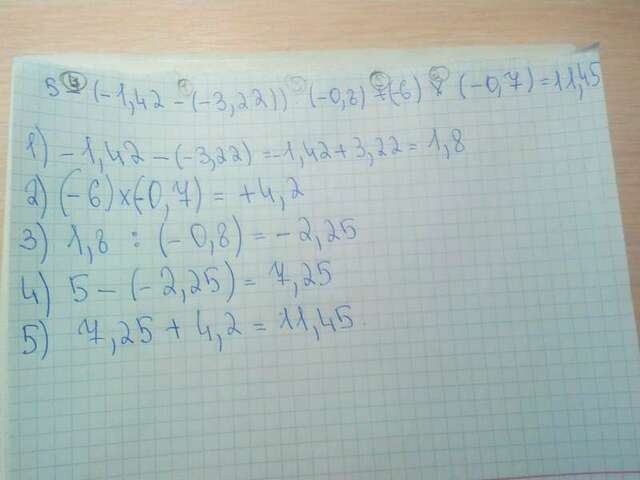 5 - (-1,42 - (-3,22)) : (-0,8) + (-6) x (-0,7) = 11,45
1) -1,42 - (-3,22) = -1,42 + 3,22 = 1,8
2) (-6) x (-0,7) = +4,2
3) 1,8 : (-0,8) = -2,25
4) 5 - (-2,25) = 7,25
5) 7,25 + 4,2 = 11,45